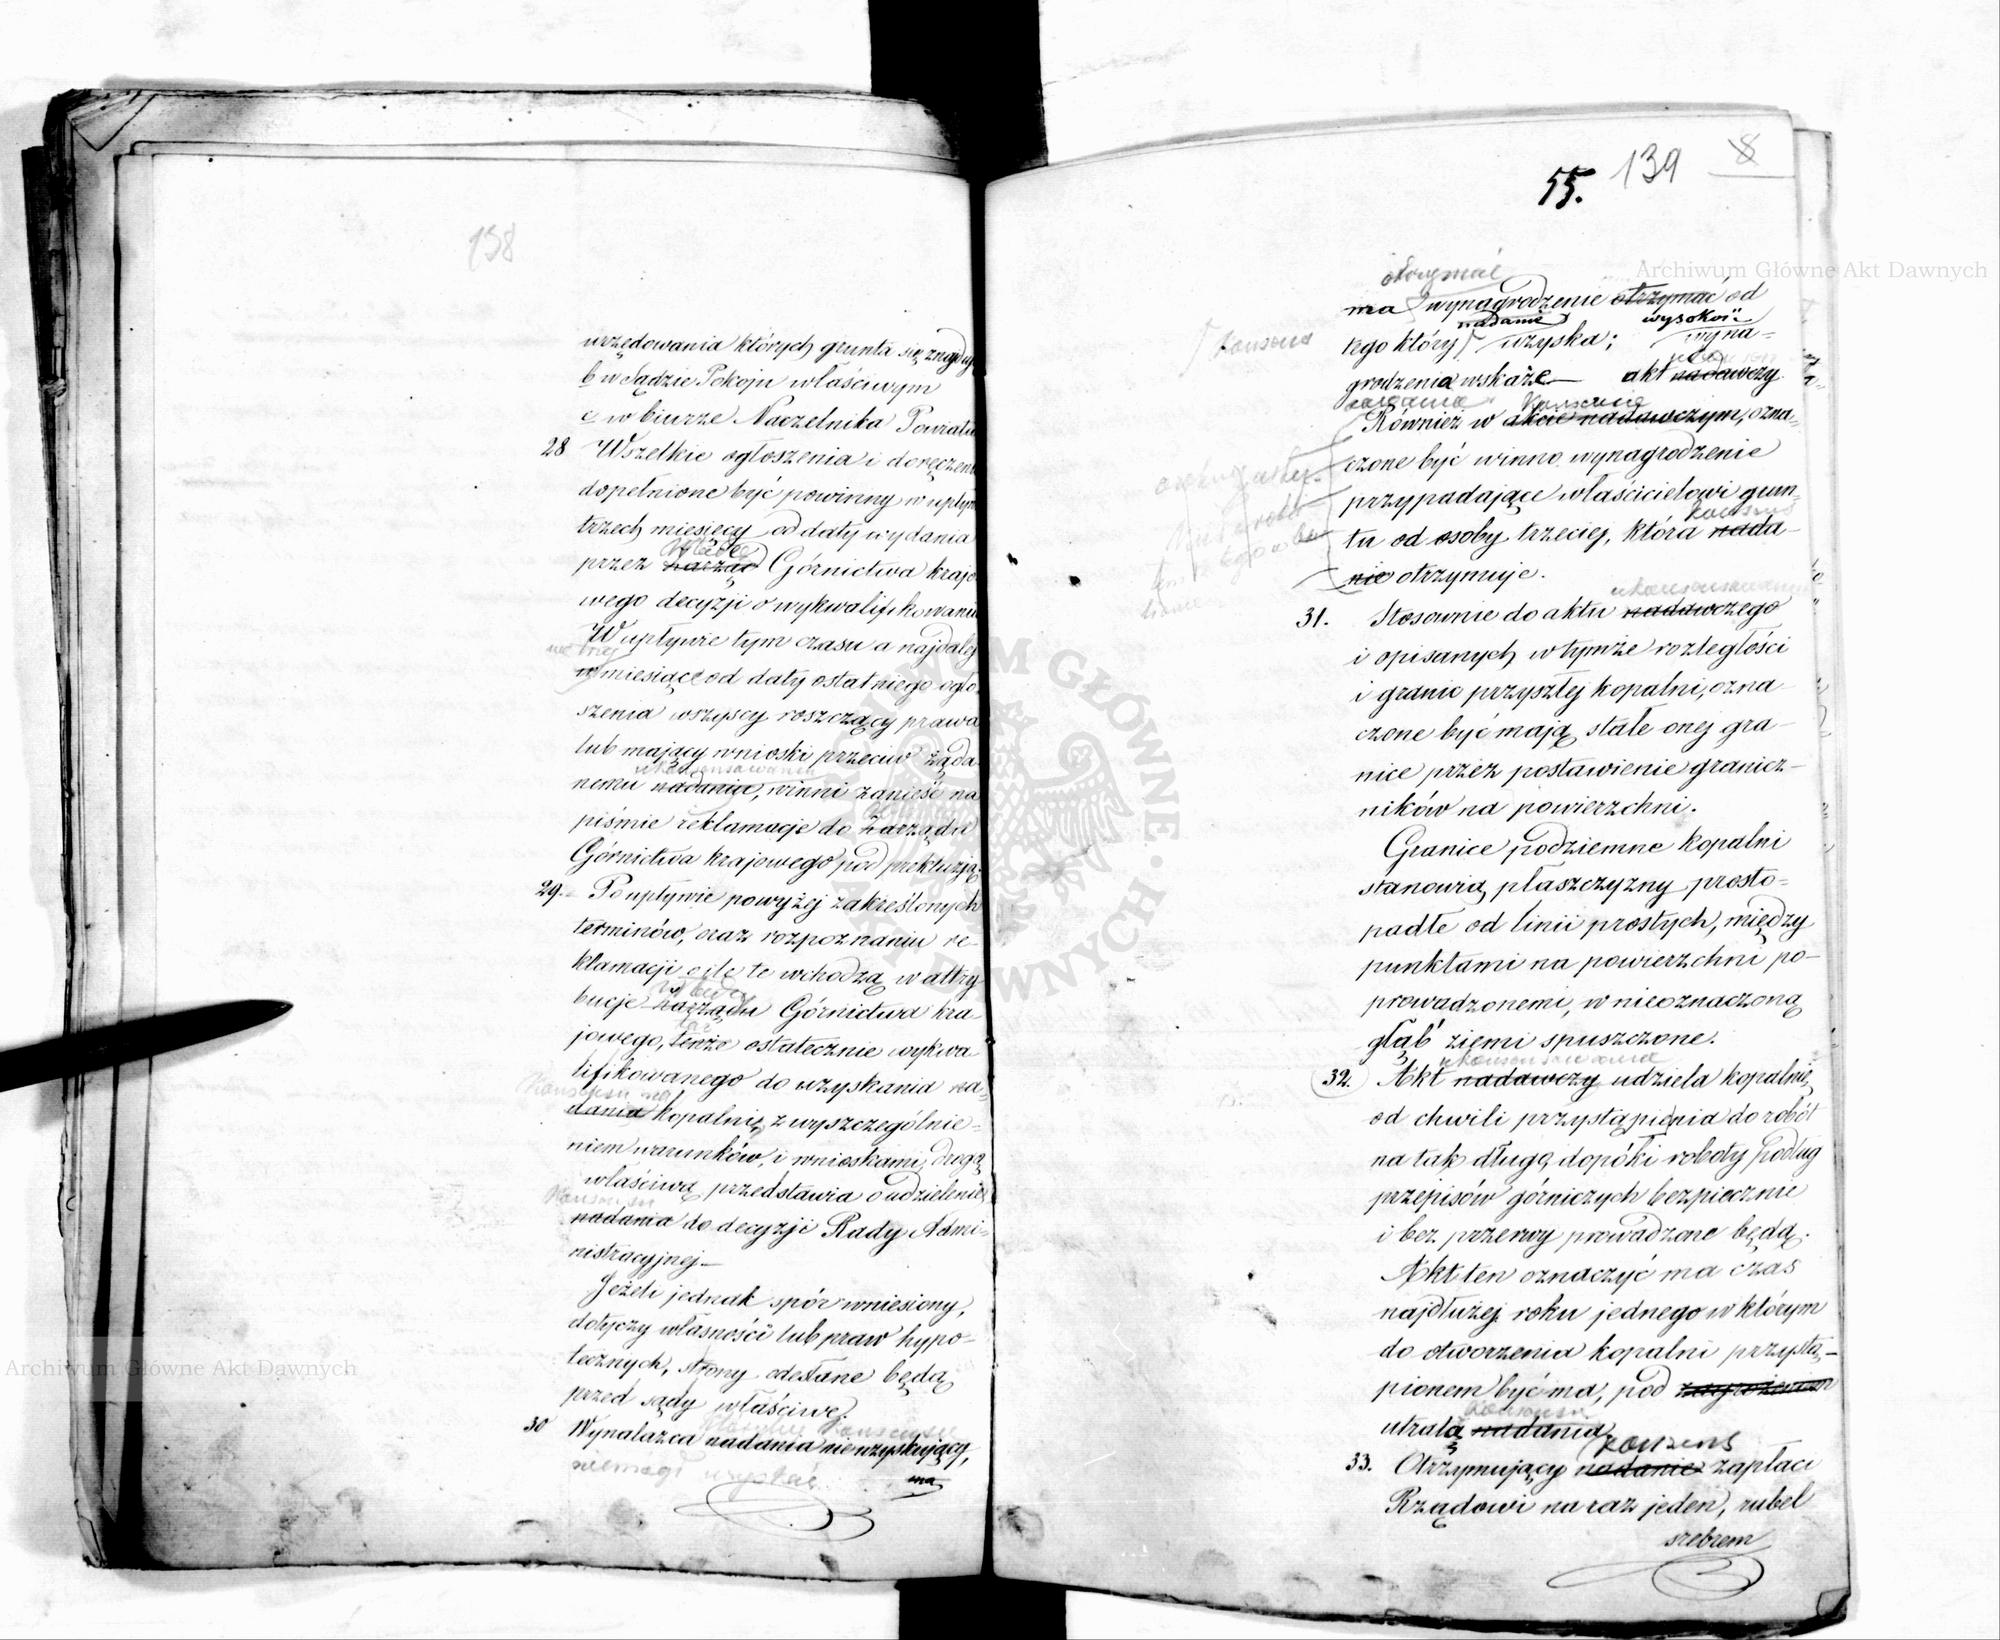 138
urzędowania których grunta się znajdują
b w Sądzie Pokoju właściwym
c w biurze Naczelnika Powiatu
28 Wszelkie ogłoszenia i doręczenia
dopełnione być powinny w upływie
trzech miesięcy od daty wydania
Władzę
przez zarząd Górnictwa krajo
wego decyzji o wykwalifikowaniu
W upływie tym czasu a najdalej
w miesiące od daty ostatniego ogło
szenia wszyscy roszczący prawa
lub mający wnioski przeciw żąda
nemu nadaniu, winni zanieść na
piśmie reklamacje do Zarządu
Górnictwa krajowego pod prekluzją.
29. Po upływie powyżej zakreślonych
terminów, oraz rozpoznaniu re-
klamacji o ile te wchodzą w attry
bucje Zarządu Górnictwa kra
jowego, tenże ostatecznie wykwa
lifikowanego do uzyskania na-
Konsensu na
dania kopalnię z wyszczególnie-
niem warunków, i wnioskami drogą
właściwą przedstawia o udzielenie
Konsensu
nadania do decyzji Rady Admi-
nistracyjnej
Jeżeli jednak spór wniesiony,
dotyczy własności lub praw hypo-
tecznych, strony odesłane będą
przed sądy właściwe.
30 Wynalazca nadania nieuzyskujący,
niemogł uzyskać ma
55. 139 8
otrzymać
ma wynagrodzenie otrzymać od
nadanie wysokość
konsens
tego który uzyska; wyna-
grodzenia wskaże akt nadawczy
Konsensie
Również w akcie nadawczym, ozna-
czone być winno wynagrodzenie
przypadające właścicielowi grun-
konsens
tu od osoby trzeciej, która nada-
nie otrzymuje.
31. Stosownie do aktu nadawczego
i opisanych w tymże rozległości
i granic przyszłej kopalni, ozna-
czone być mają stałe onej gra-
nice przez postawienie granicz-
ników na powierzchni.
Granice podziemne kopalni
stanowią płaszczyzny prosto-
padłe od linii prostych, między
punktami na powierzchni po-
prowadzonemi, w nieoznaczoną
głąb ziemi spuszczone.
32. Akt nadawczy udziela kopalnię
od chwili przystąpienia do robót
na tak długo dopóki roboty podług
przepisów górniczych bezpiecznie
i bez przerwy prowadzone będą.
Akt ten oznaczyć ma czas
najdłużej roku jednego w którym
do otworzenia kopalni przystą-
pionem być ma, pod zagrożeniem
Konsensu
utratą nadania
Konsens
33. Otrzymujący nadanie zapłaci
Rządowi na raz jeden, rubel
srebrem
Archiwum Główne Akt Dawnych
Archiwum Główne Akt Dawnych
ARCHIWUM GŁÓWNE AKT DAWNYCH